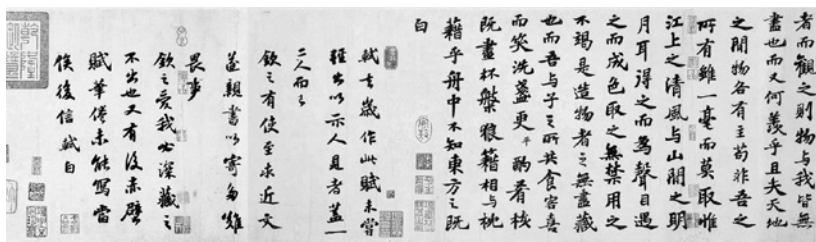 者而觀之則物與我皆無
盡也而又何羨乎且夫天地
之間物各有主苟非吾之
所有雖一毫而莫取惟
江上之清風與山間之明
月耳得之而為聲目遇
之而成色取之無禁用之
不竭是造物者之無盡藏
也而吾與子之所共食客喜
而笑洗盞更酌肴核
既盡杯盤狼藉相與枕
藉乎舟中不知東方之既
白
軾去歲作此賦未嘗
輕出以示人見者蓋一
二人而已
欽之有使至求近文
遂親書以寄多難
畏事
欽之愛我必深藏之
不出也又有後赤壁
賦筆倦未能寫當
俟後信軾白